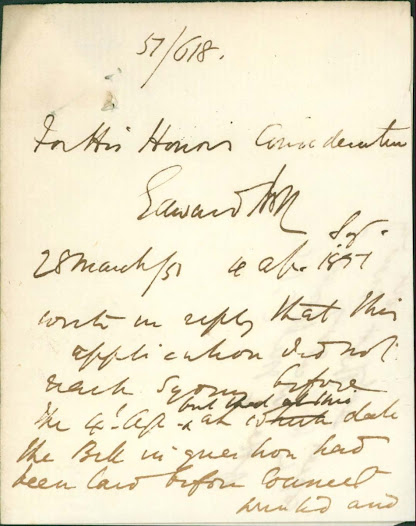 57/618.
For His Honor's Consideration
Edward
28 March/57
1857
write in reply that this
application did not
reach Sydney before
the 4. Ap. but that at this which date
the Bill in question had
been laid before Council
printed and